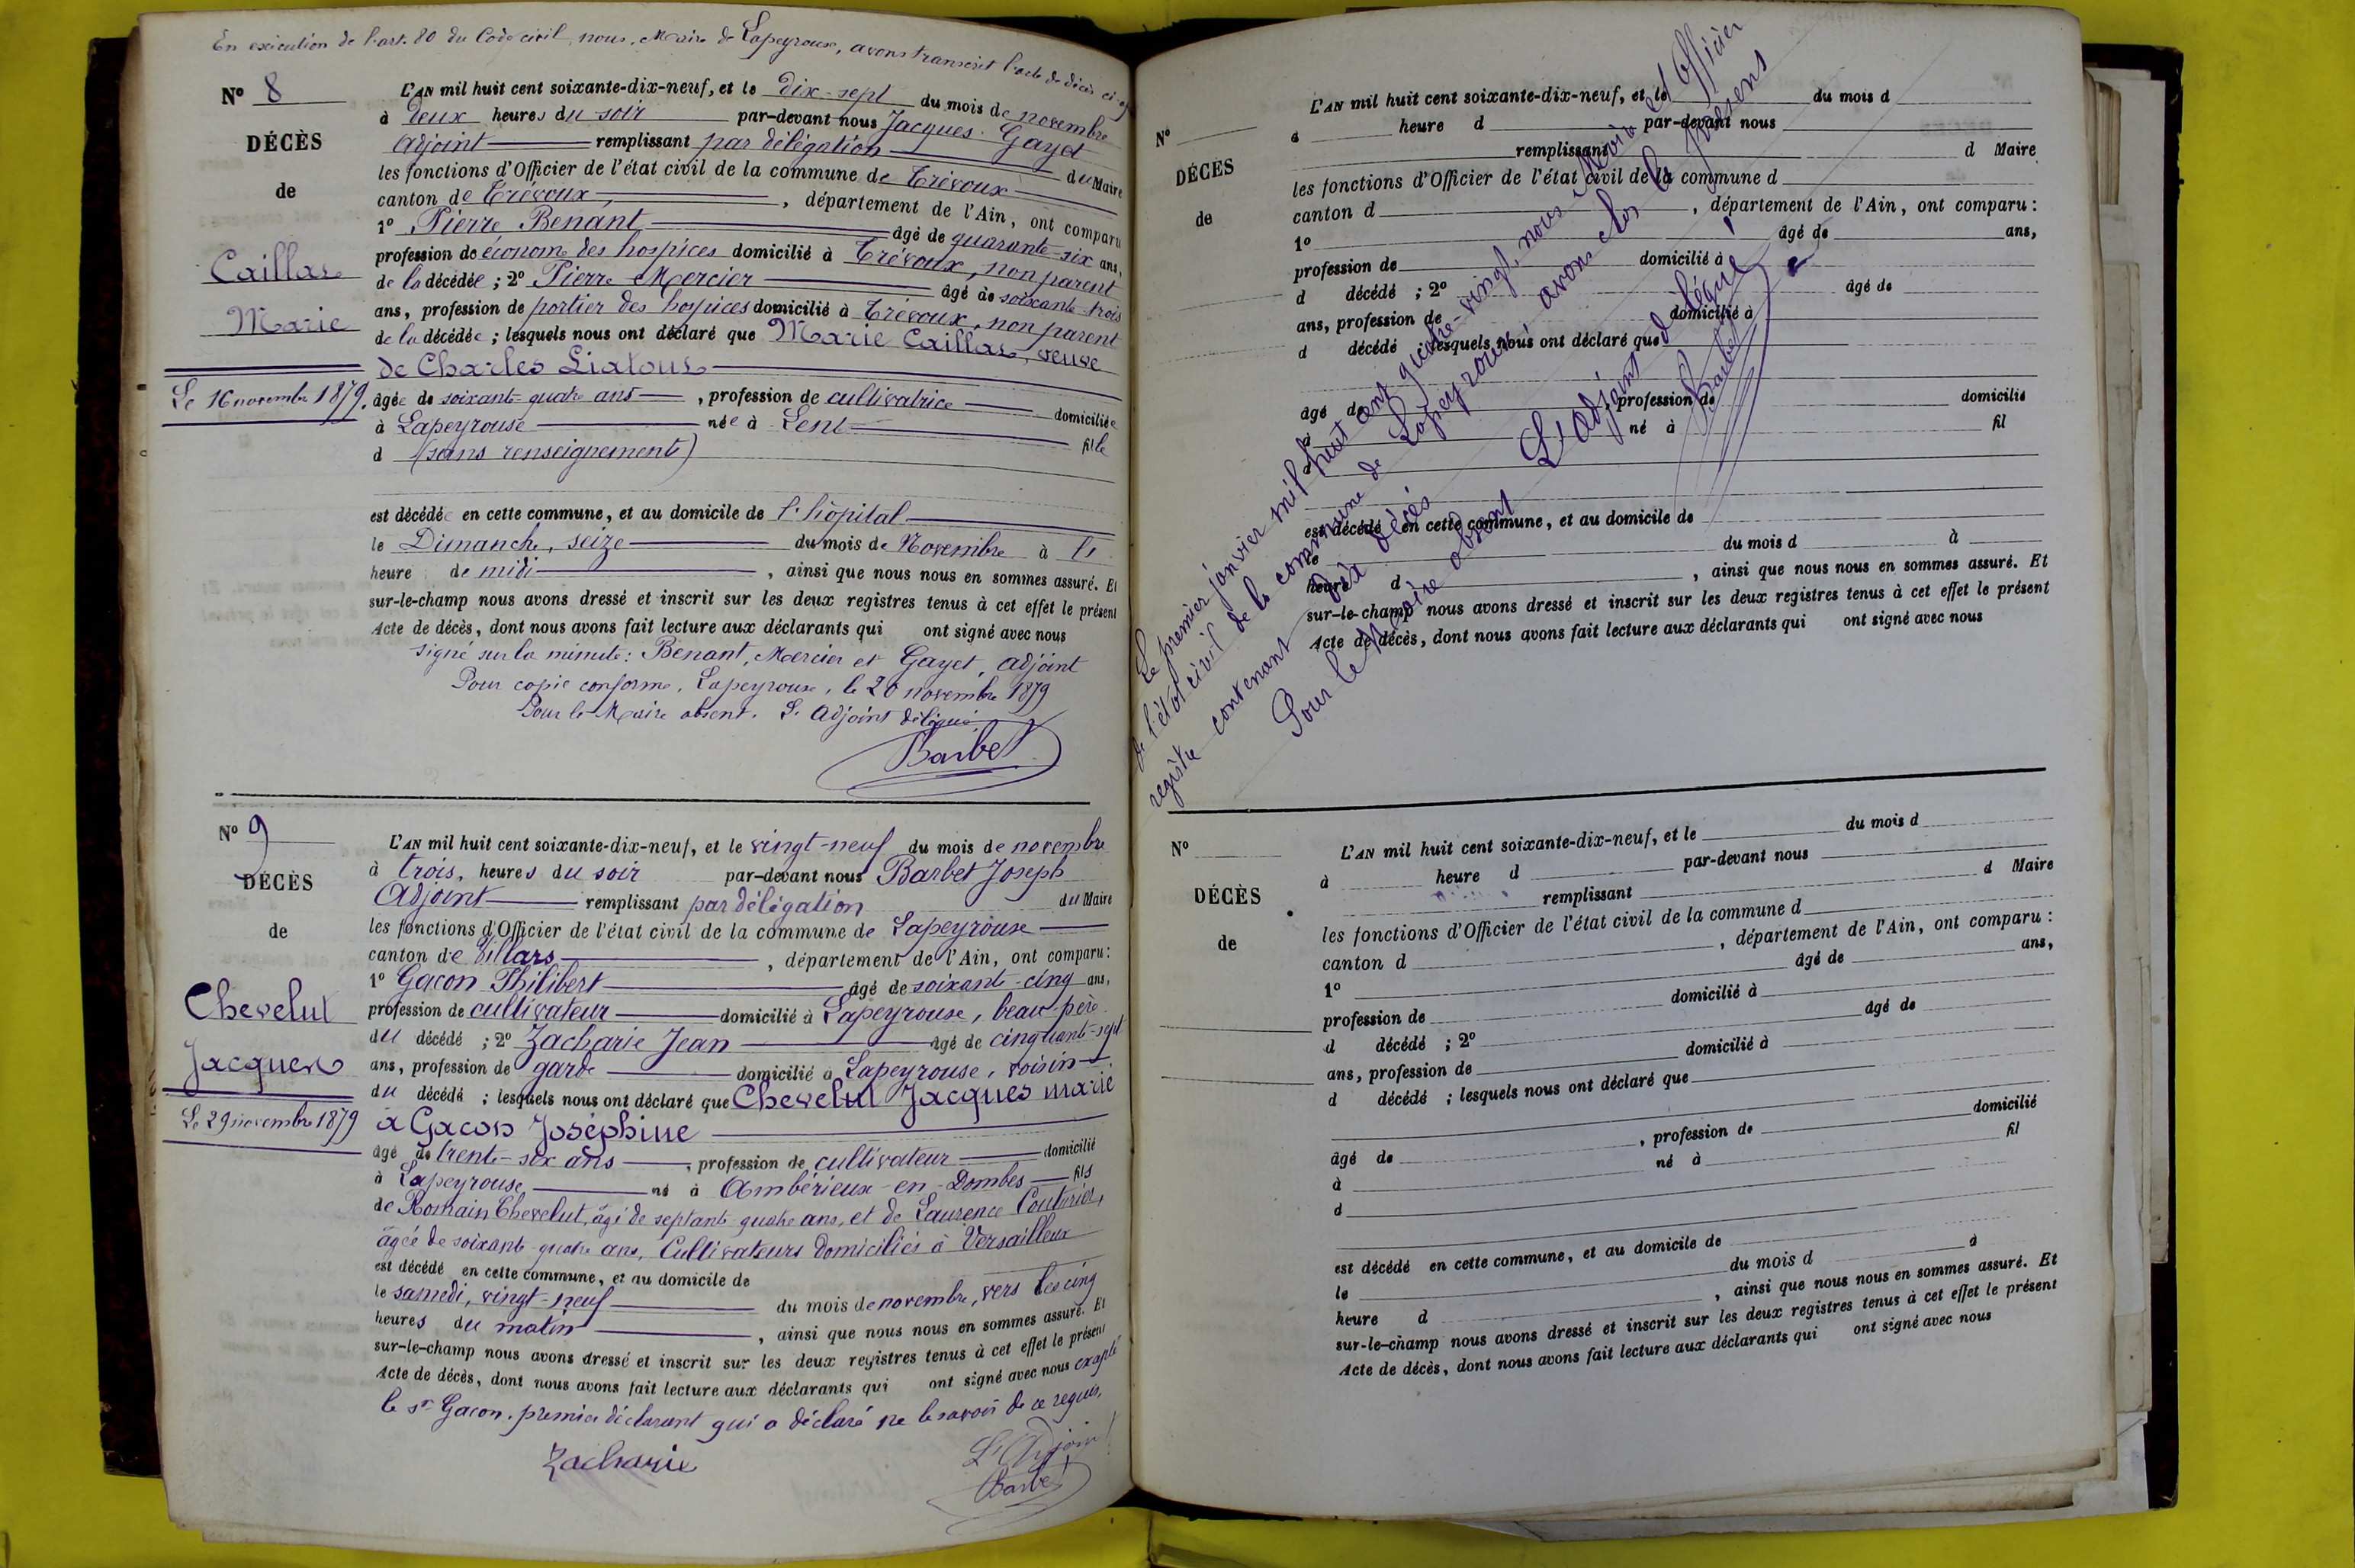 En exécution de l'art. 80 du Code civil, nous, Maire de Lapeyrouse, avons transcrit l'acte de décès
N° 8
DÉCÈS
de
Caillas
Marie
Le 16 novembre 1879.
L'AN mil huit cent soixante-dix-neuf, et le dix-sept du mois de novembre
à deux heures du soir par-devant nous Jacques Gayet
Adjoint remplissant par délégation du Maire
les fonctions d'Officier de l'état civil de la commune de Trévoux
canton de Trévoux, , département de l'Ain, ont comparu
1° Pierre Benant âgé de quarante-six ans,
profession de économe des hospices domicilié à Trévoux, non parent
de la décédée ; 2° Pierre Mercier âgé de soixante-trois
ans, profession de portier des hospices domicilié à Trévoux, non parent
de la décédée ; lesquels nous ont déclaré que Marie Caillas, veuve
de Charles Liatous
âgée de soixante-quatre ans , profession de cultivatrice domiciliée
à Lapeyrouse née à Lent fille
d (sans renseignements)
est décédée en cette commune, et au domicile de l'hôpital
le Dimanche, seize du mois de Novembre à
heure de midi , ainsi que nous nous en sommes assuré. Et
sur-le-champ nous avons dressé et inscrit sur les deux registres tenus à cet effet le présent
Acte de décès, dont nous avons fait lecture aux déclarants qui ont signé avec nous
signé sur la minute: Benant, Mercier et Gayet, adjoint
Pour copie conforme, Lapeyrouse, le 20 novembre 1879
Pour le Maire absent. L'adjoint délégué
Barbet
N° 9
DÉCÈS
de
Chevelut
Jacques
Le 29 novembre 1879
L'AN mil huit cent soixante-dix-neuf, et le vingt-neuf du mois de novembre
à trois, heures du soir par-devant nous Barbet Joseph
Adjoint remplissant par délégation du Maire
les fonctions d'Officier de l'état civil de la commune de Lapeyrouse
canton de Villars , département de l'Ain, ont comparu:
1° Gacon Philibert âgé de soixante-cinq ans,
profession de cultivateur domicilié à Lapeyrouse, beau-père
du décédé ; 2° Zacharie Jean âgé de cinquante-sept
ans, profession de garde domicilié à Lapeyrouse, voisin
du décédé ; lesquels nous ont déclaré que Chevelut Jacques marié
à Gacon Joséphine
âgé de trente-six ans , profession de cultivateur domicilié
à Lapeyrouse né à Ambérieux-en-Dombes fils
de Romain Chevelut, âgé de septante quatre ans, et de Laurence Couturier,
âgée de soixante-quatre ans, Cultivateurs domiciliés à Versailleux
est décédé en cette commune, et au domicile de
le samedi, vingt-neuf du mois de novembre, vers les cinq
heures du matin , ainsi que nous nous en sommes assuré. Et
sur-le-champ nous avons dressé et inscrit sur les deux registres tenus à cet effet le présent
Acte de décès, dont nous avons fait lecture aux déclarants qui ont signé avec nous excepté
le sr Gacon, premier déclarant qui a déclaré ne le savoir de ce requis.
Zacharie
L'Adjoint
Barbet
N°
DÉCÈS
de
L'AN mil huit cent soixante-dix-neuf, et le du mois d
à heure d par-devant nous
remplissant d Maire
les fonctions d'Officier de l'état civil de la commune d
canton d , département de l'Ain, ont comparu :
1° âgé de ans,
profession de domicilié à
d décédé ; 2° âgé de
ans, profession de domicilié à
d décédé ; lesquels nous ont déclaré que
âgé de , profession de domicilié
à né à fil
d
est décédé en cette commune, et au domicile de
le du mois d à
heure d , ainsi que nous nous en sommes assuré. Et
sur-le-champ nous avons dressé et inscrit sur les deux registres tenus à cet effet le présent
Acte de décès, dont nous avons fait lecture aux déclarants qui ont signé avec nous
Le premier janvier mil huit cent quatre-vingt, nous Maire et Officier
de l'état civil de la commune de Lapeyrouse, avons clos le présent
registre contenant dix décès
Pour le Maire absent L'Adjoint délégué
Barbet
N°
DÉCÈS
de
L'AN mil huit cent soixante-dix-neuf, et le du mois d
à heure d par-devant nous
remplissant d Maire
les fonctions d'Officier de l'état civil de la commune d
canton d , département de l'Ain, ont comparu :
1° âgé de ans,
profession de domicilié à
d décédé ; 2° âgé de
ans, profession de domicilié à
d décédé ; lesquels nous ont déclaré que
âgé de , profession de domicilié
à né à fil
d
est décédé en cette commune, et au domicile de
le du mois d à
heure d , ainsi que nous nous en sommes assuré. Et
sur-le-champ nous avons dressé et inscrit sur les deux registres tenus à cet effet le présent
Acte de décès, dont nous avons fait lecture aux déclarants qui ont signé avec nous